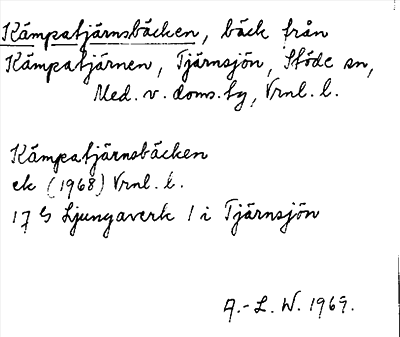 Kämpatjärnsbäcken, bäck från
Kämpatjärnen, Tjärnsjön, Stöde sn,
Med. v. doms. tg, Vrnl. l.
Kämpatjärnsbäcken
ek (1968) Vrnl. l.
17 G Ljungaverk 1 i Tjärnsjön
A.-L. W. 1969.